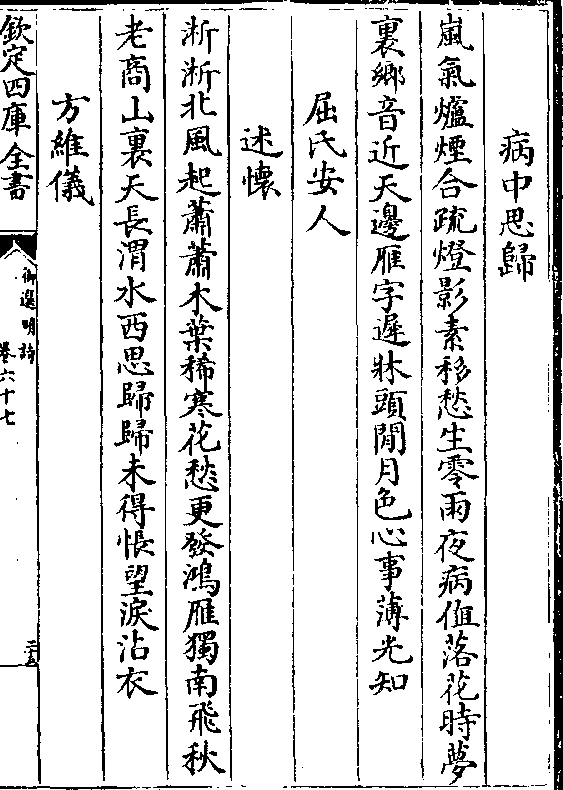 病中思歸
嵐氣爐煙合疏燈影素移愁生零雨夜病值落花時夢
裏鄉音近天邊雁字遲牀頭閒月色心事薄光知
屈氏安人
述懷
淅淅北風起蕭蕭木葉稀寒花愁更發鴻雁獨南飛秋
老商山裏天長渭水西思歸歸未得悵望淚沾衣
方維儀
欽定四庫全書
御選明詩
卷六十七